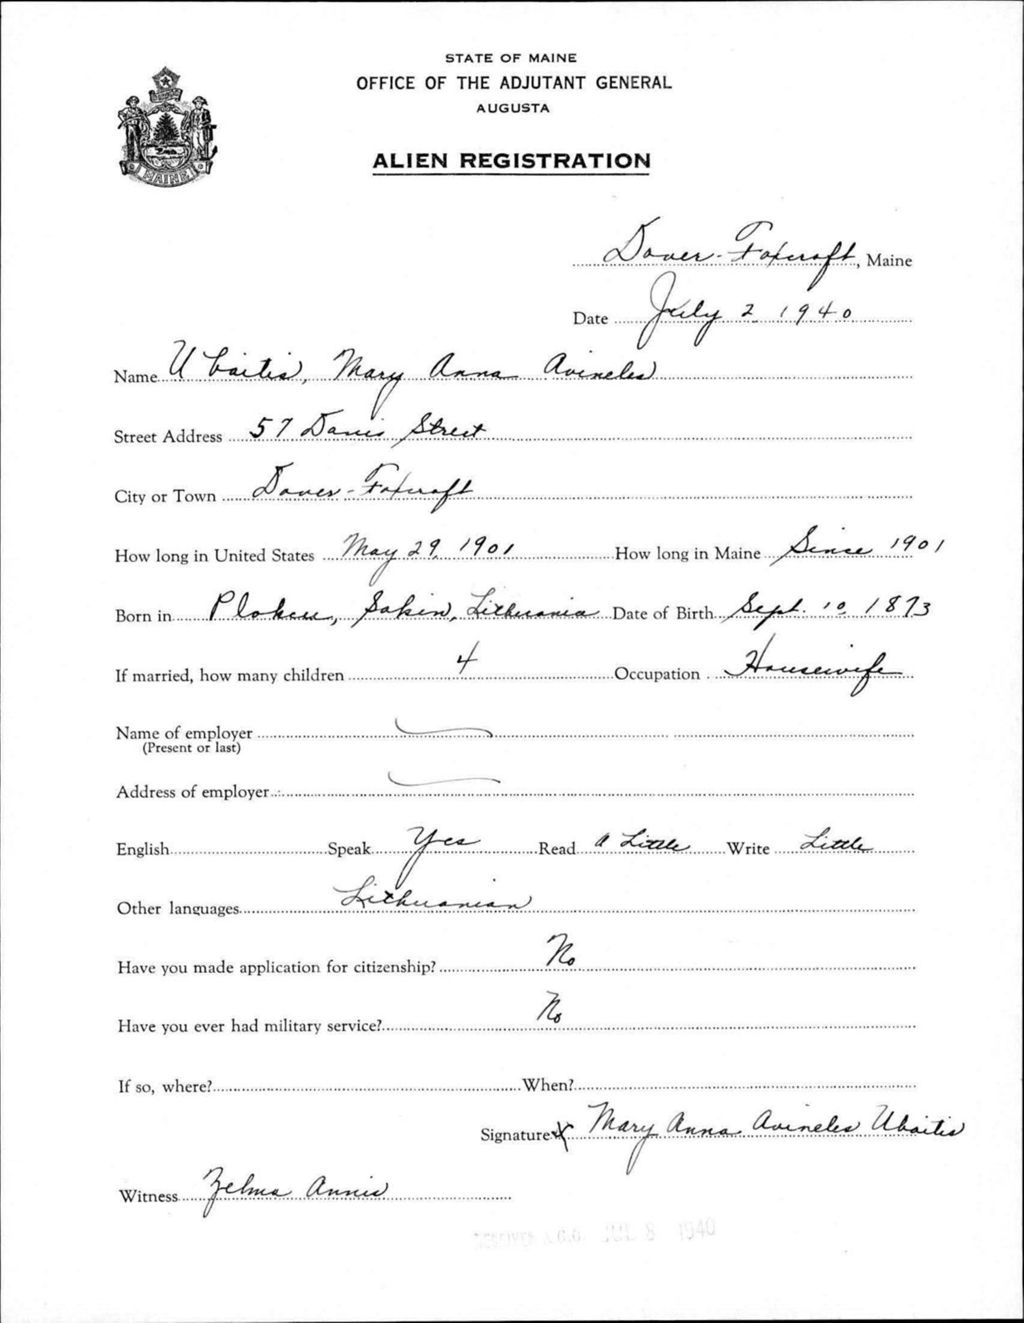 STATE OF MAINE
OFFICE OF THE ADJUTANT GENERAL
AUGUSTA
MAINE
ALIEN REGISTRATION
Dover-Foxcroft, Maine
Date July 2 1940
Name Ubaitis, Mary Anna Avineles
Street Address 57 Davis Street
City or Town Dover-Foxcroft
How long in United States May 29, 1901 How long in Maine Since 1901
Born in Lithuania Date of Birth Sept. 10, 1873
If married, how many children 4 Occupation Housewife
Name of employer
(Present or last)
Address of employer
English Speak Yes Read A Little Write Little
Other languages Lithuanian
Have you made application for citizenship? No
Have you ever had military service? No
If so, where? When?
Signature X Mary Anna Avineles Ubaitis
Witness Zelma Annis
RECEIVED A.G.O. JUL 8 1940